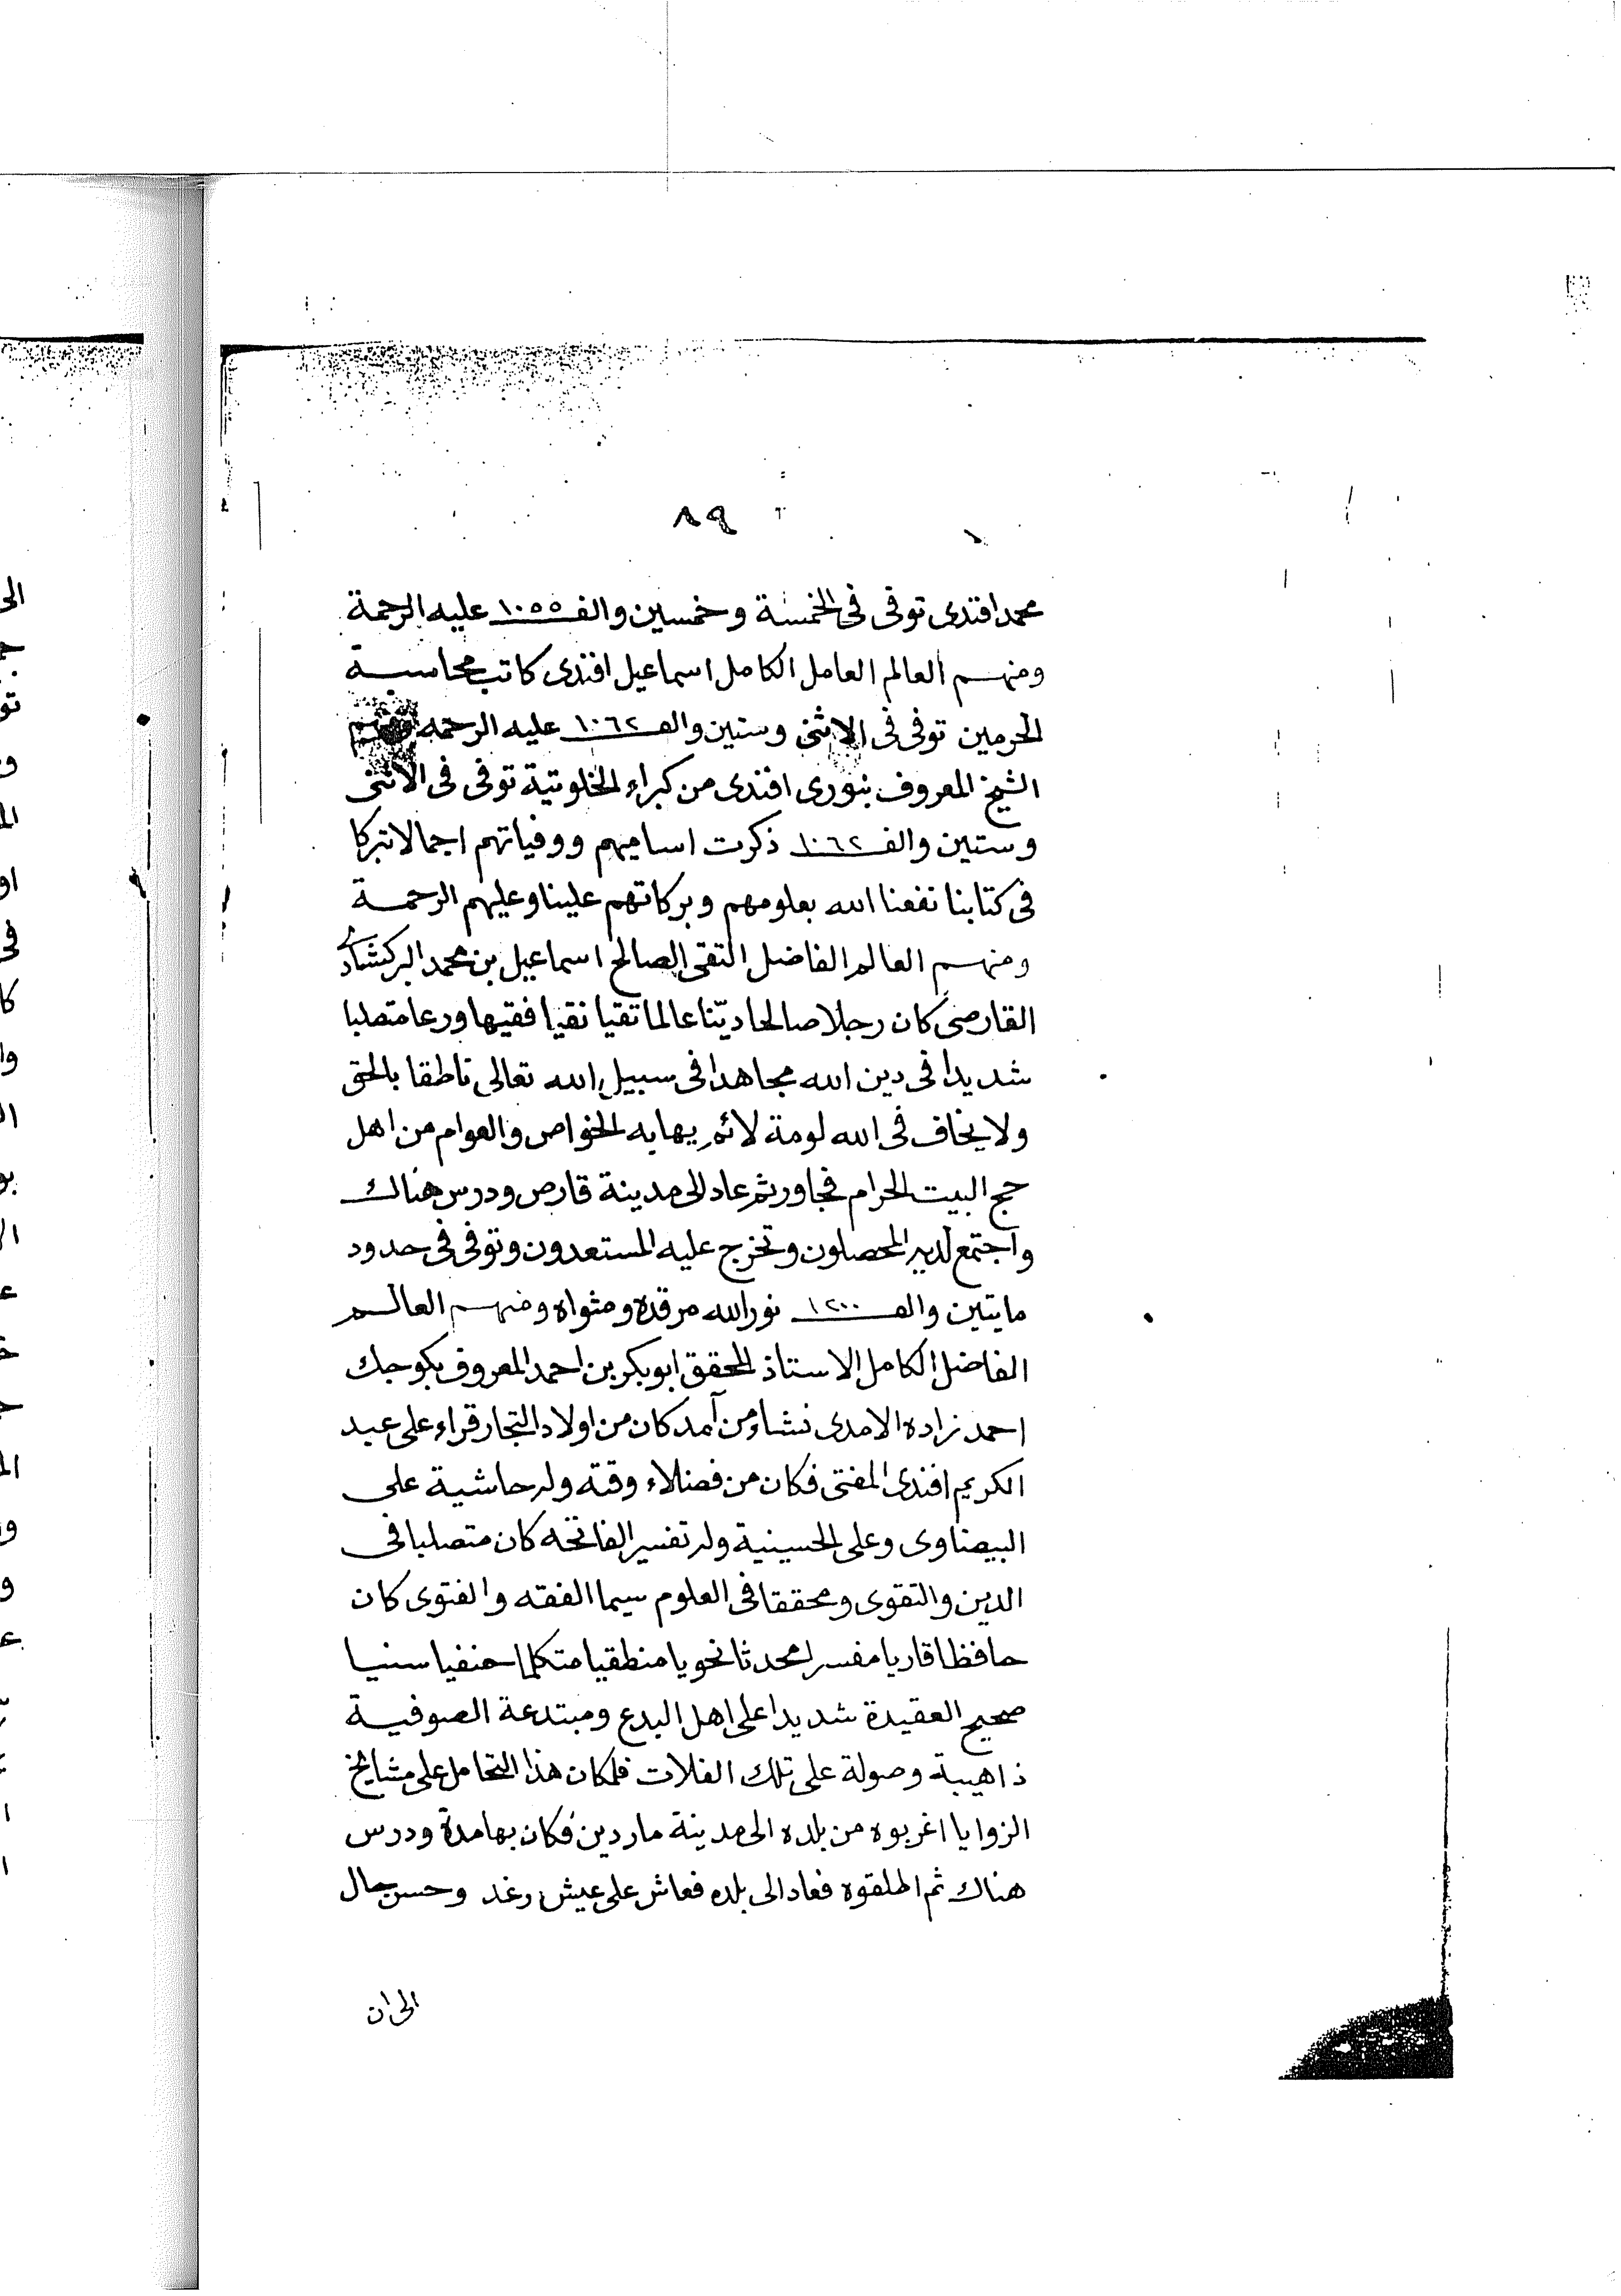 ٨٩
محمد افندى توفى فى الخمسة وخمسين والف ١٠٥٥ عليه الرحمة
ومنهم العالم العامل الكامل اسماعيل افندى كاتب محاسبة
الحرمين توفى فى الاثنى وستين والف ١٠٦٢ عليه الرحمه ومنهم
الشيخ المعروف بنورى افندى من كبراء الخلوتية توفى فى الاثنى
وستين والف ١٠٦٢ ذكرت اساميهم ووفياتهم اجمالا تبركا
فى كتابنا نفعنا الله بعلومهم وبركاتهم علينا وعليهم الرحمة
ومنهم العالم الفاضل التقى الصالح اسماعيل بن محمد
القارصى كان رجلا صالحا ديّنا عالما تقيا نقيا فقيها ورعا متصلبا
شديدا فى دين الله مجاهدا فى سبيل الله تعالى ناطقا بالحق
ولا يخاف فى الله لومة لائم يهابه الخواص والعوام من اهل
حج البيت الحرام فجاور ثم عاد الى مدينة قارص ودرس هناك
واجتمع لديه المحصلون وتخرج عليه المستعدون وتوفى فى حدود
مايتين والف ١٢٠٠ نور الله مرقده ومثواه ومنهم العالم
الفاضل الكامل الاستاذ المحقق ابوبكر بن احمد المعروف بكوجك
احمد زاده الامدى نشاء من آمد كان من اولاد التجار قراء على عبد
الكريم افندى المفتى فكان من فضلاء وقته وله حاشية على
البيضاوى وعلى الحسينية وله تفسير الفاتحه كان متصلبا فى
الدين والتقوى ومحققا فى العلوم سيما الفقه والفتوى كان
حافظا قاريا مفسرا محدثا نحويا منطقيا متكلما حنفيا سنيا
صحيح العقيدة شديدا على اهل البدع ومبتدعة الصوفية
ذا هيبة وصولة على تلك الغلات فلمكان هذا التحامل على مشايخ
الزوايا اغربوه من بلده الى مدينة ماردين فكان بها مدة ودرس
هناك ثم اطلقوه فعاد الى بلده فعاش على عيش رغد وحسن حال
الى ان